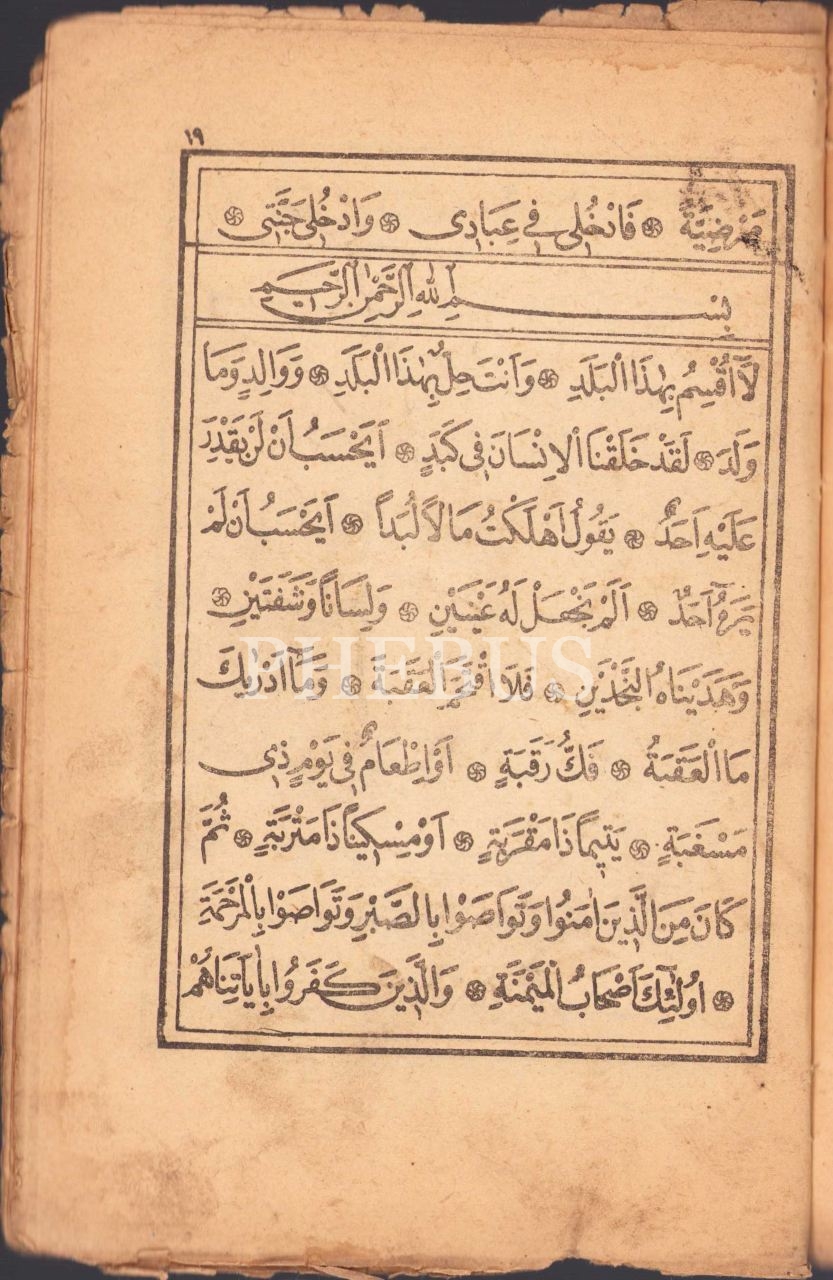 ١٩
مَرْضِيَّةً ۞ فَادْخُلِى فِى عِبَادِى ۞ وَادْخُلِى جَنَّتِى ۞
بِسْمِ اللهِ الرَّحْمٰنِ الرَّحِيمِ
لَآ اُقْسِمُ بِهٰذَا الْبَلَدِ ۞ وَاَنْتَ حِلٌّ بِهٰذَا الْبَلَدِ ۞ وَوَالِدٍ وَمَا
وَلَدَ ۞ لَقَدْ خَلَقْنَا الْاِنْسَانَ فِى كَبَدٍ ۞ اَيَحْسَبُ اَنْ لَنْ يَقْدِرَ
عَلَيْهِ اَحَدٌ ۞ يَقُولُ اَهْلَكْتُ مَالًا لُبَدًا ۞ اَيَحْسَبُ اَنْ لَمْ
يَرَهُ اَحَدٌ ۞ اَلَمْ نَجْعَلْ لَهُ عَيْنَيْنِ ۞ وَلِسَانًا وَشَفَتَيْنِ ۞
وَهَدَيْنَاهُ النَّجْدَيْنِ ۞ فَلَا اقْتَحَمَ الْعَقَبَةَ ۞ وَمَآ اَدْرٰيكَ
مَا الْعَقَبَةُ ۞ فَكُّ رَقَبَةٍ ۞ اَوْ اِطْعَامٌ فِى يَوْمٍ ذِى
مَسْغَبَةٍ ۞ يَتِيمًا ذَا مَقْرَبَةٍ ۞ اَوْ مِسْكِينًا ذَا مَتْرَبَةٍ ۞ ثُمَّ
كَانَ مِنَ الَّذِينَ اٰمَنُوا وَتَوَاصَوْا بِالصَّبْرِ وَتَوَاصَوْا بِالْمَرْحَمَةِ
۞ اُولٰٓئِكَ اَصْحَابُ الْمَيْمَنَةِ ۞ وَالَّذِينَ كَفَرُوا بِاٰيَاتِنَا هُمْ
PHEBUS